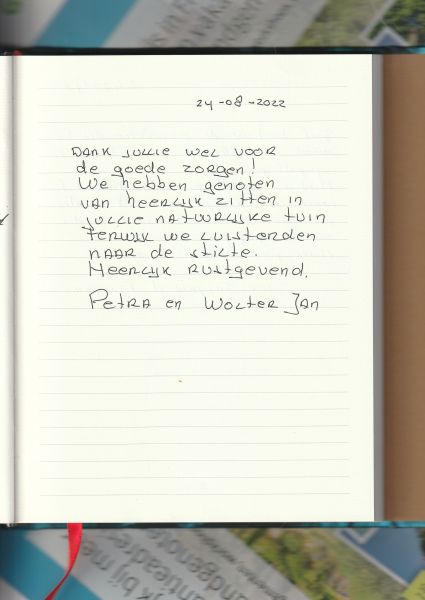 24-08-2022
DANK JULLIE WEL VOOR
de goede zorgen!
We hebben genoten
VAN HEERLIJK ZITTEN in
JULLIE NATUURLIJKE TUIN
TERWIJL we LUISTERDEN
NAAR de STILTE.
HEERLIJK RUSTGEVEND.
PETRA en WOLTER JAN